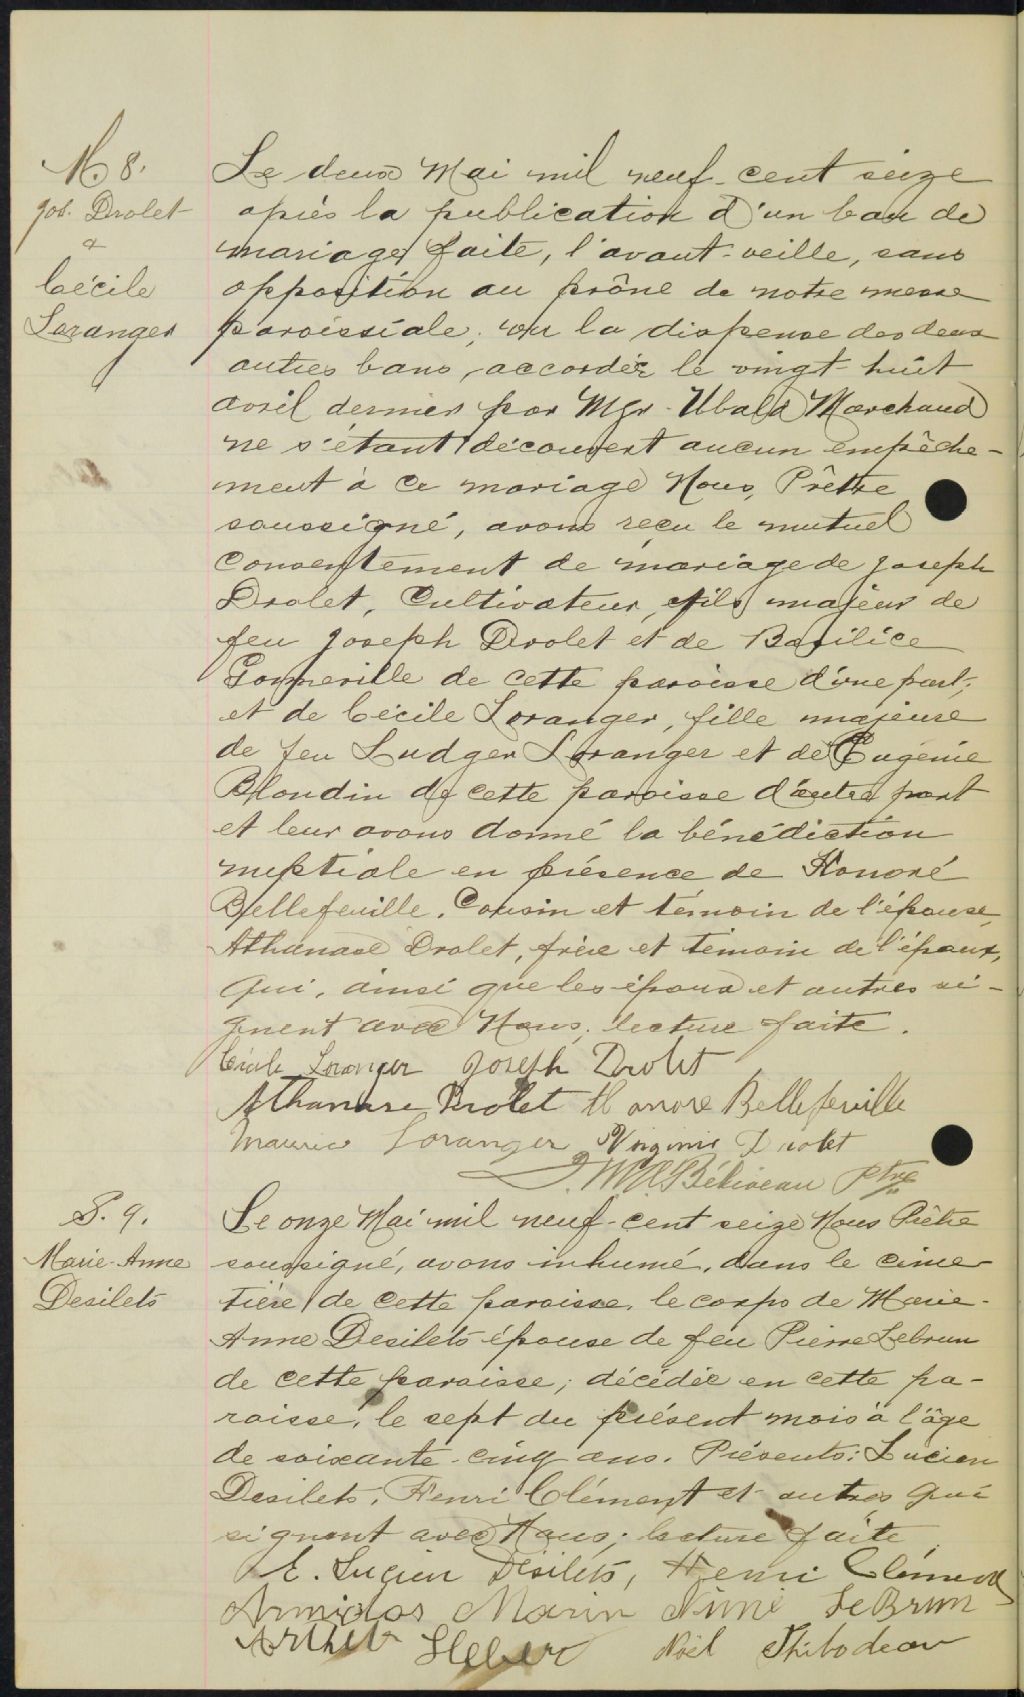 M. 8.
Jos. Drolet
&
Cécile
Loranger
Le deux Mai mil neuf-cent seize
après la publication d'un ban de
mariage, faite, l'avant-veille, sans
opposition au prône de notre messe
paroissiale; vu la dispense des deux
autres bans, accordée le vingt-huit
avril dernier par Mgr. Ubald Marchand
ne s'étant découvert aucun empêche-
ment à ce mariage Nous, Prêtre
soussigné, avons reçu le mutuel
consentement de mariage de Joseph
Drolet, Cultivateur, fils majeur de
feu Joseph Drolet et de Basilice
Gonneville de cette paroisse d'une part;
et de Cécile Loranger, fille majeure
de feu Ludger Loranger et de Eugénie
Blondin de cette paroisse d'autre part
et leur avons donné la bénédiction
nuptiale en présence de Honoré
Bellefeuille, Cousin et témoin de l'épouse,
Athanase Drolet, frère et témoin de l'époux,
qui, ainsi que les époux et autres si-
gnent avec Nous, lecture faite.
Cécile Loranger Joseph Drolet
Athanase Drolet Honoré Bellefeuille
Maurice Loranger Virginie Drolet
Béliveau ptre
S. 9.
Marie-Anne
Desilets
Le onze Mai mil neuf-cent seize Nous Prêtre
soussigné, avons inhumé, dans le cime-
tière de cette paroisse, le corps de Marie-
Anne Desilets épouse de feu Pierre Lebrun
de cette paroisse; décédée en cette pa-
roisse, le sept du présent mois à l'âge
de soixante-cinq ans. Présents: Lucien
Desilets, Henri Clément et autres qui
signent avec Nous; lecture faite.
E. Lucien Désilets, Henri Clément
Armidas Marin Aimé LeBrun
Arthur Heber Noël Thibodeau